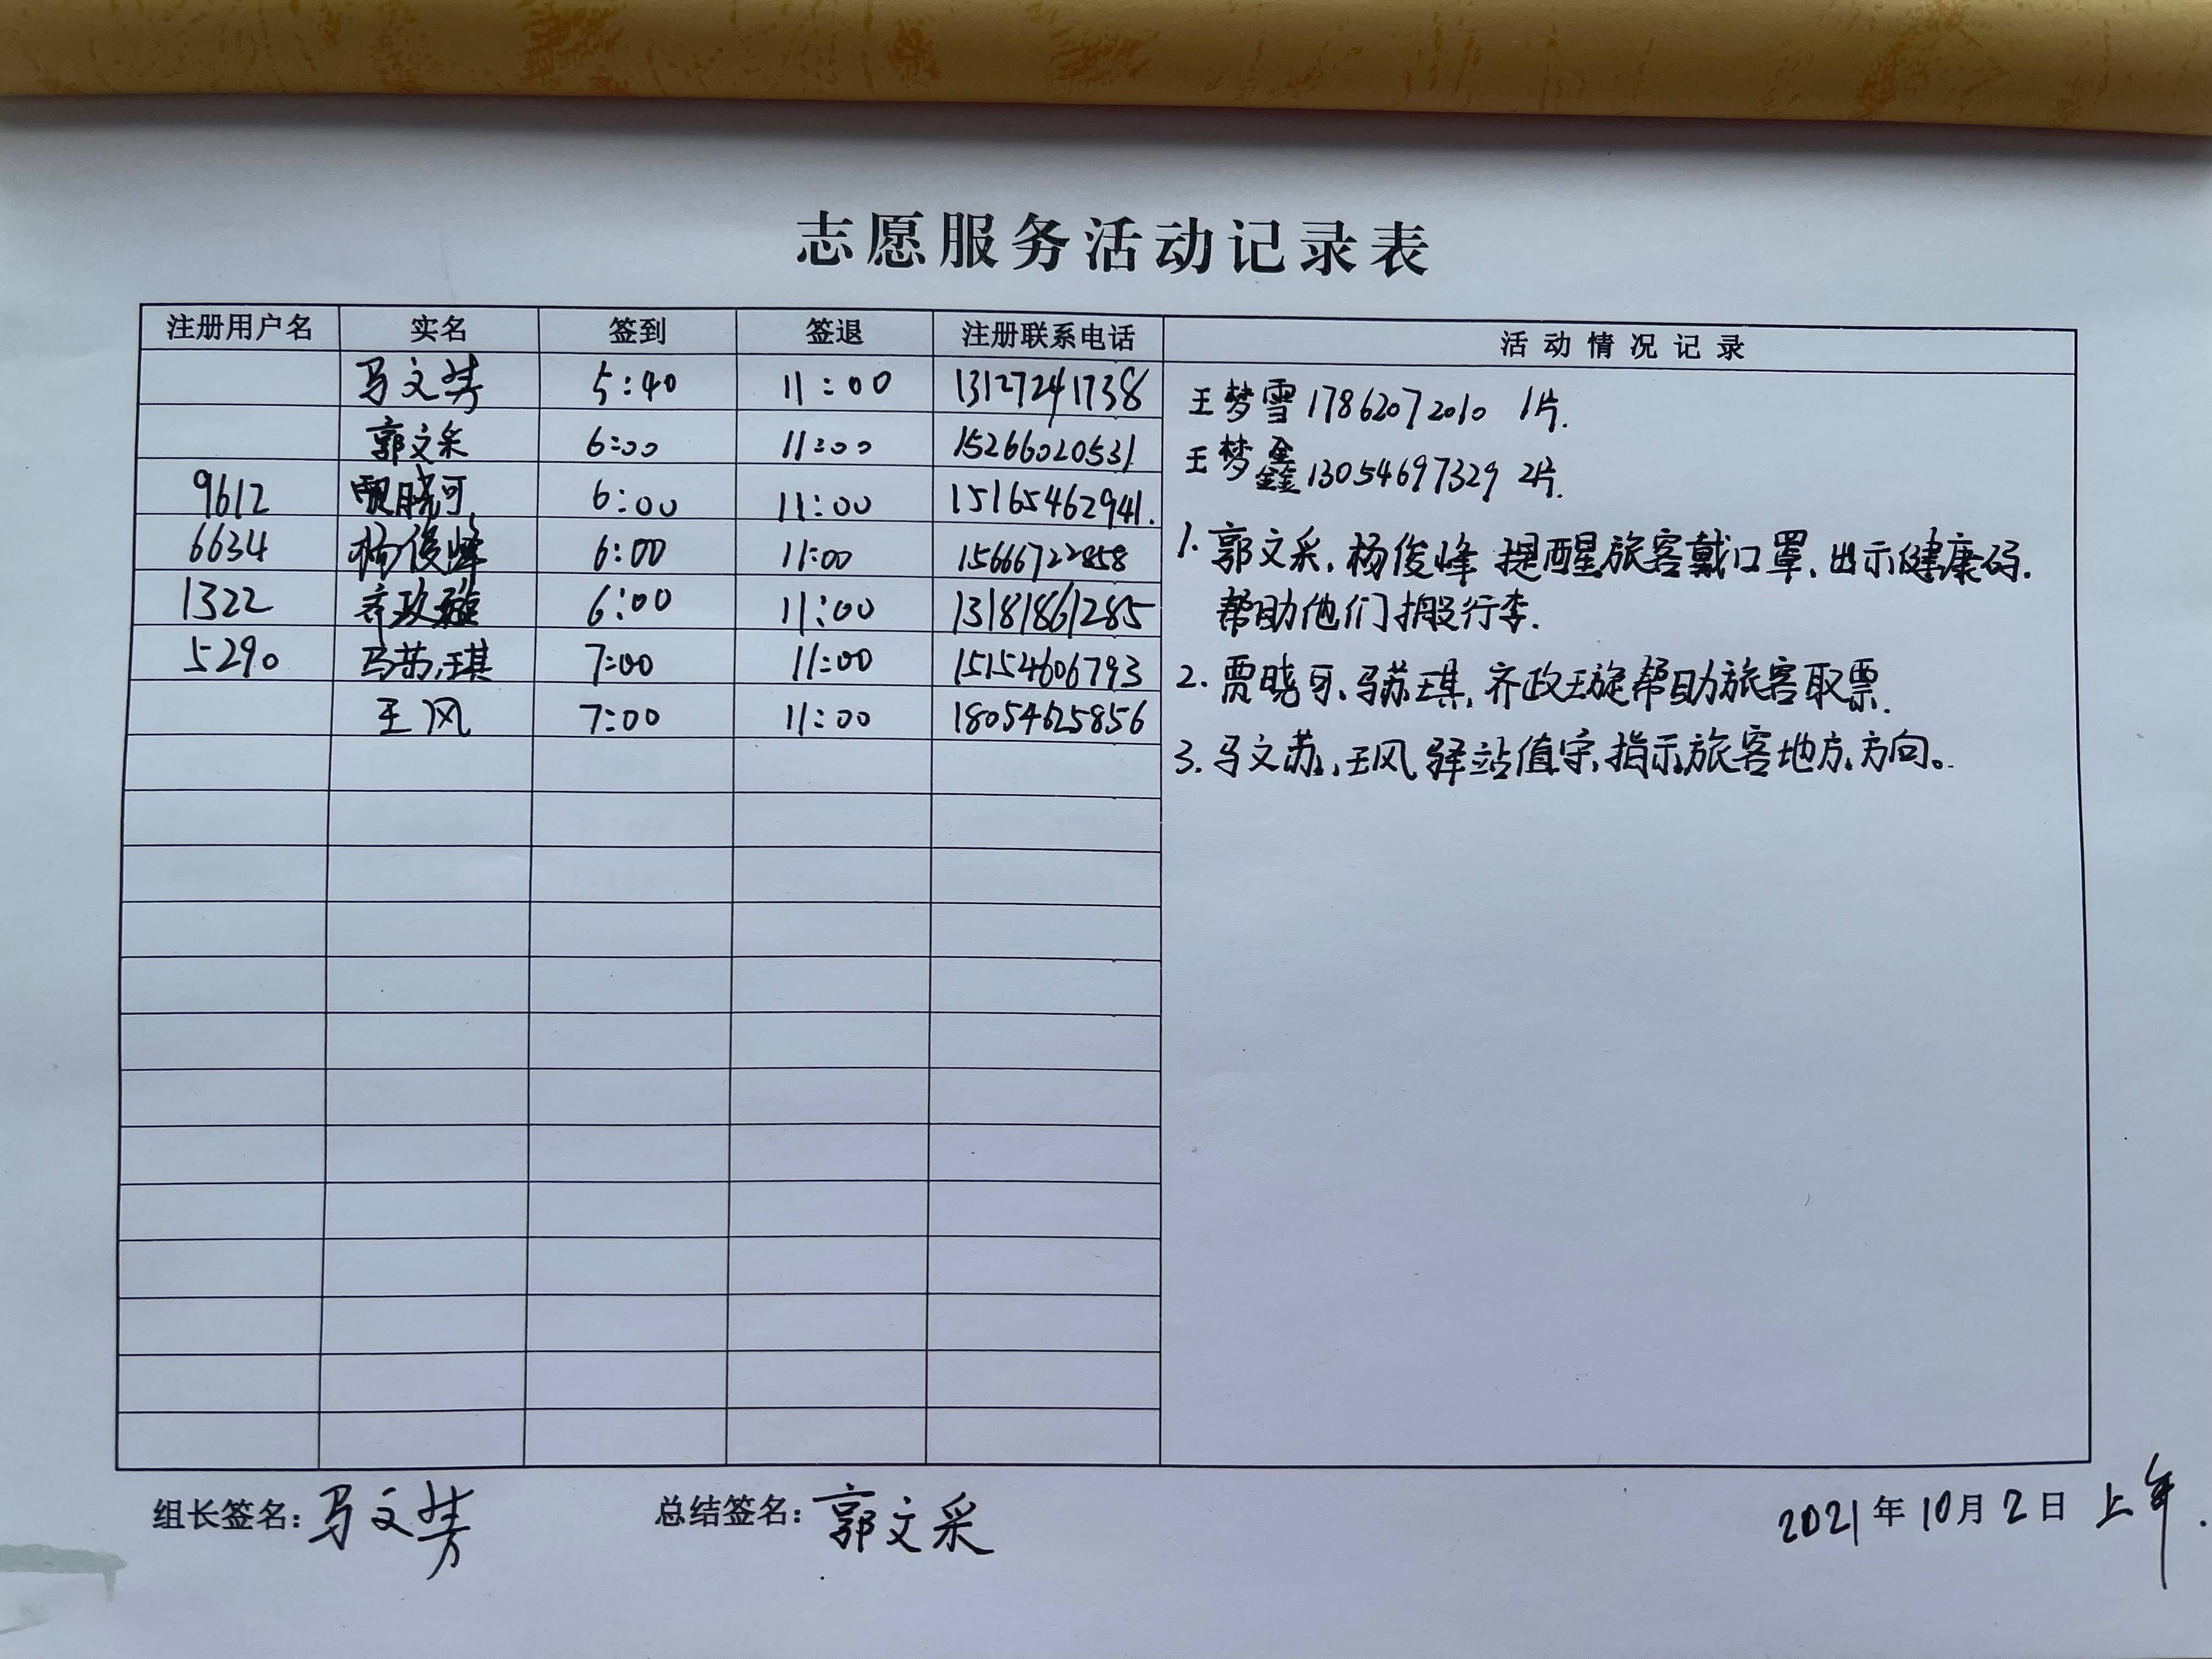 志愿服务活动记录表
注册用户名 实名 签到 签退 注册联系电话 活动情况记录
马文芳 5:40 11:00 13127241738
郭文采 6:00 11:00 15266020531
9612 贾晓可 6:00 11:00 15165462941.
6634 杨俊峰 6:00 11:00 15666722858
1322 齐政璇 6:00 11:00 13181861285
5290 马苏琪 7:00 11:00 15154606793
王风 7:00 11:00 18054625856
王梦雪17862072010 1片.
王梦鑫13054697329 2片.
1.郭文采,杨俊峰 提醒旅客戴口罩,出示健康码.
帮助他们搬行李.
2.贾晓可、马苏琪,齐政璇帮助旅客取票.
3.马文苏,王风 驿站值守,指示旅客地方、方向。
组长签名:马文芳 总结签名:郭文采 2021年10月2日 上午.